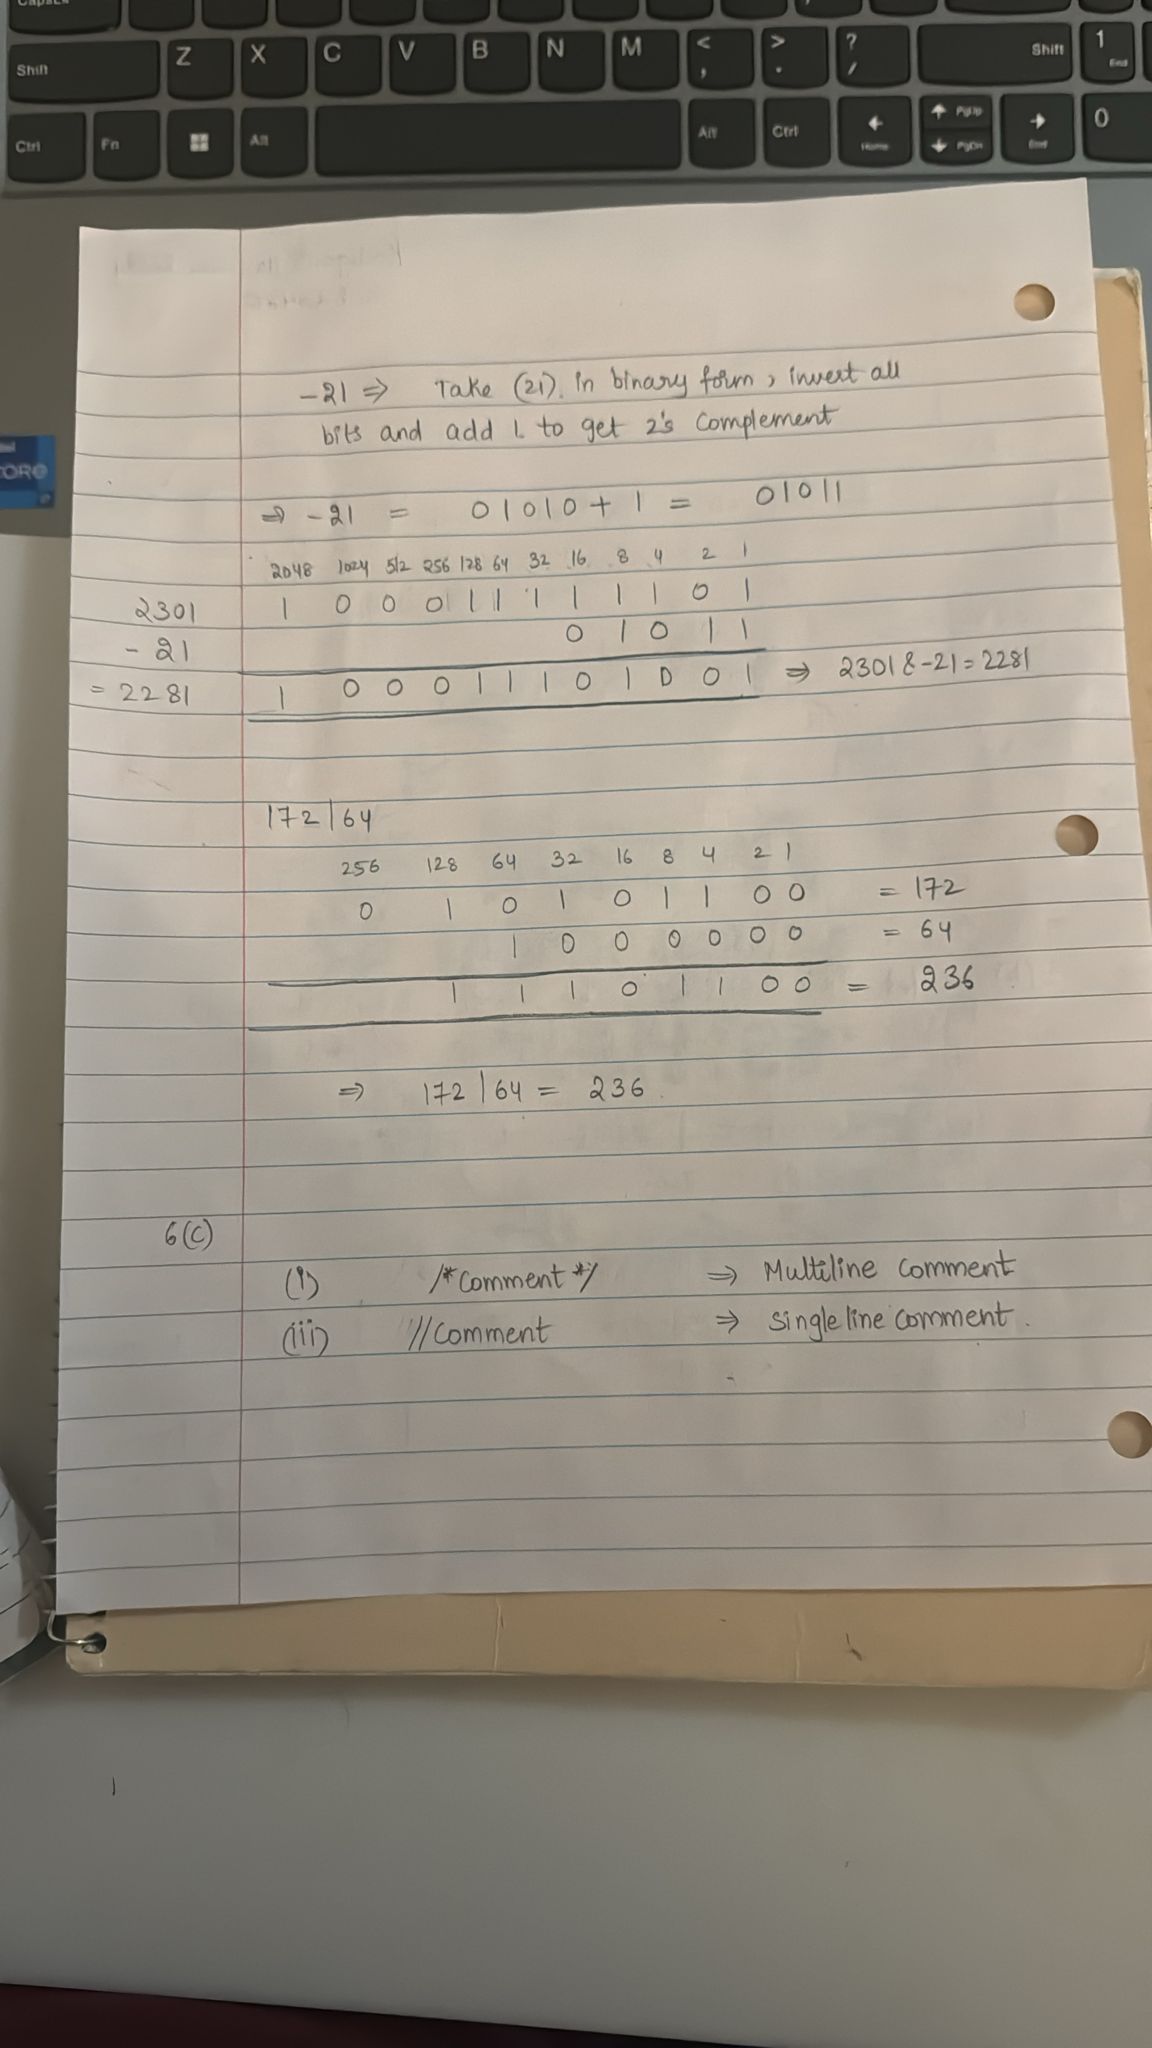 CapsLk
Shift Z X C V B N M < , > . ? / Shift 1 End
Ctrl Fn Alt Alt Ctrl Home PgUp PgDn End 0
CORE
-21 ⇒ Take (21). in binary form, invert all
bits and add 1 to get 2's complement
⇒ -21 = 01010 + 1 = 01011
2048 1024 512 256 128 64 32 16 8 4 2 1
2301 1 0 0 0 1 1 1 1 1 1 0 1
- 21 0 1 0 1 1
= 2281 1 0 0 0 1 1 1 0 1 0 0 1 ⇒ 2301 & -21 = 2281
172 | 64
256 128 64 32 16 8 4 2 1
0 1 0 1 0 1 1 0 0 = 172
1 0 0 0 0 0 0 = 64
1 1 1 0 1 1 0 0 = 236
⇒ 172 | 64 = 236
6(C)
(i) /* Comment */ ⇒ Multiline comment
(iii) // Comment ⇒ single line comment.